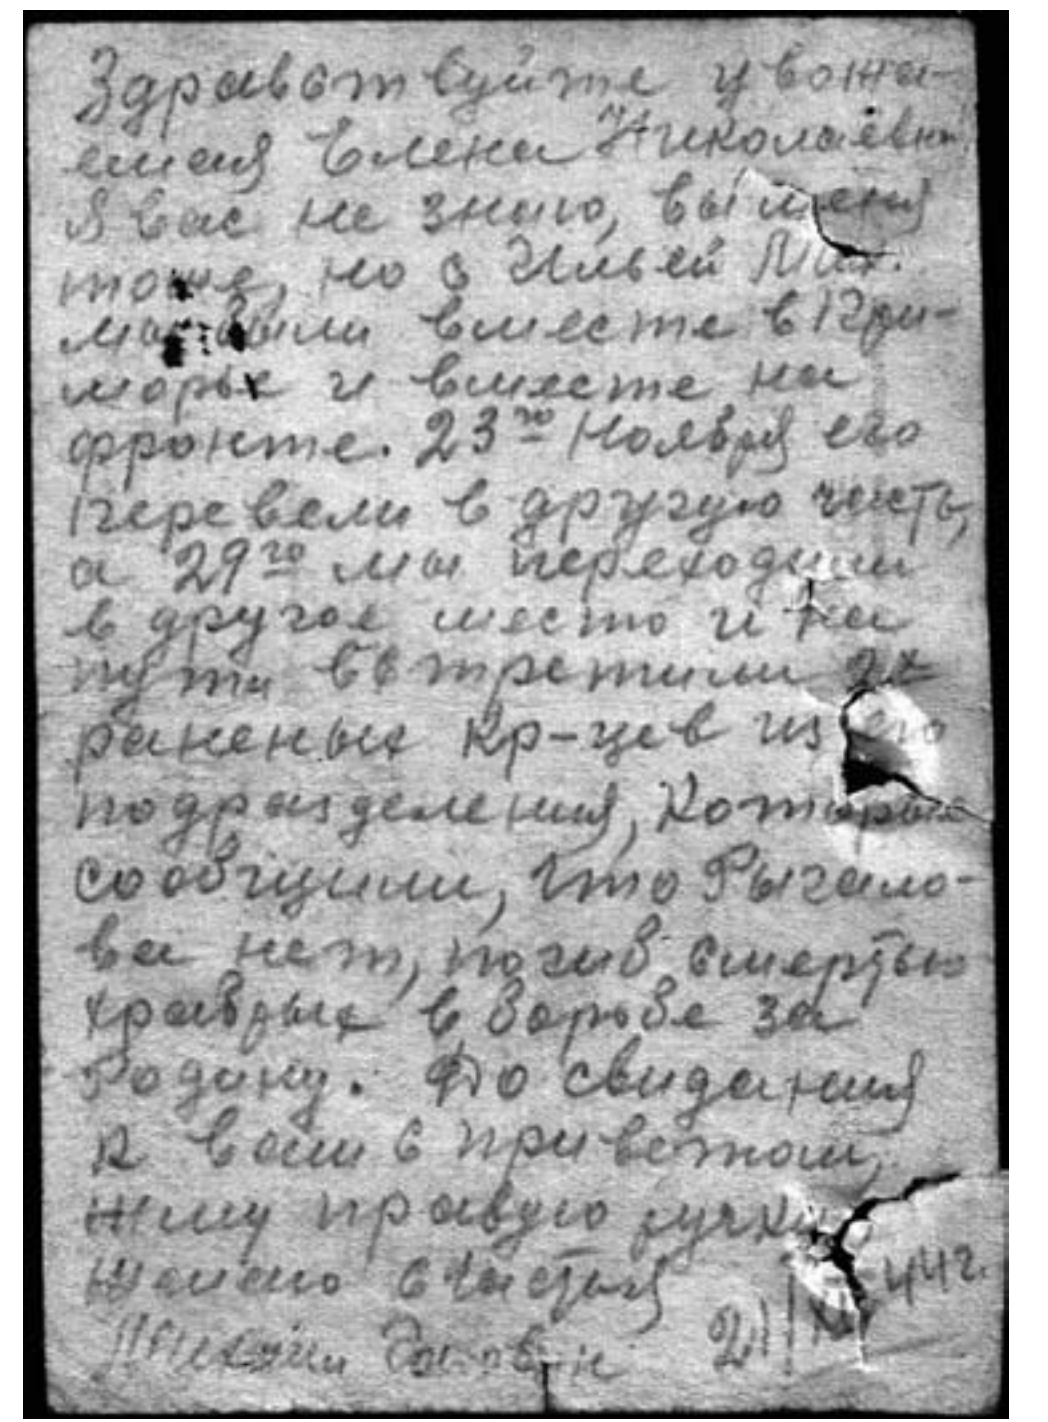 Здравствуйте уважа-
емая Елена Николаевна
Я вас не знаю, вы меня
тоже, но с Ильей Мих.
мы были вместе в При-
морье и вместе на
фронте. 23го Ноября его
перевели в другую часть,
а 29го мы переходили
в другое место и на
пути встретили 2х
раненых Кр-цев из его
подразделения, которые
сообщили, что Рыгало-
ва нет, погиб смертью
храбрых в борьбе за
Родину. До свидания
к вам с приветом,
жму правую ручку
желаю счастья
Михаил 44г.